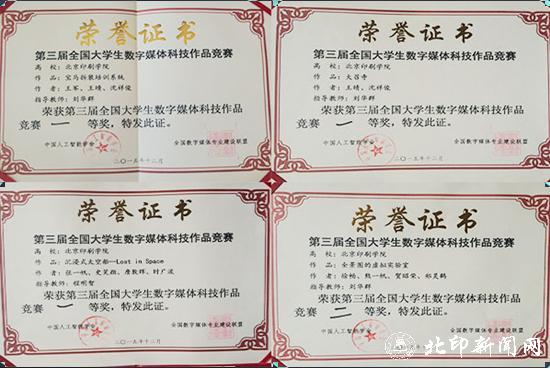 荣誉证书
第三届全国大学生数字媒体科技作品竞赛
高 校：北京印刷学院
作 品：宝马拆装培训系统
作 者：王军、王晴、沈祥俊
指导教师：刘华群
荣获第三届全国大学生数字媒体科技作品
竞赛 一 等奖，特发此证。
中国人工智能学会
全国数字媒体专业建设联盟
二〇一五年十二月
荣誉证书
第三届全国大学生数字媒体科技作品竞赛
高 校：北京印刷学院
作 品：大召寺
作 者：王晴、沈祥俊
指导教师：刘华群
荣获第三届全国大学生数字媒体科技作品
竞赛 一 等奖，特发此证。
中国人工智能学会
全国数字媒体专业建设联盟
二〇一五年十二月
荣誉证书
第三届全国大学生数字媒体科技作品竞赛
高 校：北京印刷学院
作 品：沉浸式太空船—Lost in Space
作 者：张一帆、史笑颜、唐数辉、时广波
指导教师：程明智
荣获第三届全国大学生数字媒体科技作品
竞赛 一 等奖，特发此证。
中国人工智能学会
全国数字媒体专业建设联盟
二〇一五年十二月
荣誉证书
第三届全国大学生数字媒体科技作品竞赛
高 校：北京印刷学院
作 品：全景图的虚拟实验室
作 者：徐畅、熊一帆、贺昭荣、郝灵鹤
指导教师：刘华群
荣获第三届全国大学生数字媒体科技作品
竞赛 二 等奖，特发此证。
中国人工智能学会
全国数字媒体专业建设联盟
二〇一五年
北印新闻网